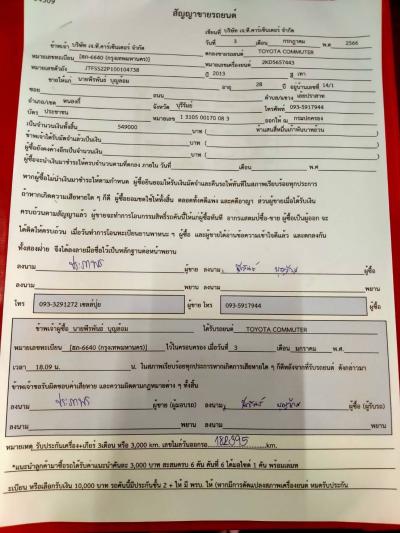 สัญญาขายรถยนต์
เขียนที่ บริษัท เจ.ที.คาร์เซ็นเตอร์ จำกัด
วันที่ 3 เดือน กรกฎาคม พ.ศ. 2566
ข้าพเจ้า บริษัท เจ.ที.คาร์เซ็นเตอร์ จำกัด ตกลงขายรถยนต์ TOYOTA COMMUTER
หมายเลขทะเบียน [ฮภ-6640 (กรุงเทพมหานคร)] หมายเลขเครื่องยนต์ 2KD5657443
หมายเลขตัวถัง JTFSS22P100104738 ปี 2013 สี เทา
ขายให้แก่ นายพีรพันธ์ บุญล้อม อายุ 28 ปี อยู่บ้านเลขที่ 14/1
ซอย ถนน ตำบล/แขวง เย้ยปราสาท
อำเภอ/เขต หนองกี่ จังหวัด บุรีรัมย์ โทรศัพท์ 093-5917944
บัตร ประชาชน หมายเลข 1 3105 00170 08 3 ออกให้ ณ กรมปกครอง
เป็นจำนวนเงินทั้งสิ้น 549000 บาท ( ห้าแสนสี่หมื่นเก้าพันบาทถ้วน )
ข้าพเจ้าได้รับมัดจำแล้วเป็นเงิน บาท ( )
ผู้ซื้อยังคงค้างอีกเป็นจำนวนเงิน บาท ( )
ผู้ซื้อจะนำเงินมาชำระให้ครบจำนวนตามที่ตกลง ภายใน วันที่ เดือน พ.ศ.
หากผู้ซื้อไม่นำเงินมาชำระให้ตามกำหนด ผู้ซื้อยินยอมให้ริบเงินมัดจำและคืนรถให้ทันทีในสภาพเรียบร้อยทุกประการ
ถ้าหากเกิดความเสียหายใด ๆ ก็ดี ผู้ซื้อยอมชดใช้ให้ทั้งสิ้น ตลอดทั้งคดีแพ่ง และคดีอาญา ส่วนผู้ขายเมื่อได้รับเงิน
ครบถ้วนตามสัญญาแล้ว ผู้ขายจะทำการโอนกรรมสิทธิ์รถคันนี้ให้แก่ผู้ซื้อทันที อากรแสตมป์ซื้อ-ขาย ผู้ซื้อเป็นผู้ออก จะ
ได้คิดให้ครบถ้วน เมื่อวันทำการโอนทะเบียนยานพาหนะ ๆ ผู้ซื้อ และผู้ขายได้อ่านข้อความเข้าใจดีแล้ว และตกลงกัน
ทั้งสองฝ่าย จึงได้ลงลายมือชื่อไว้เป็นหลักฐานต่อหน้าพยาน
ลงนาม ผู้ขาย ลงนาม ผู้ซื้อ
ลงนาม พยาน ลงนาม พยาน
โทร 093-3291272 เซลล์ปุย ผู้ขาย โทร 093-5917944 ผู้ซื้อ
ข้าพเจ้าผู้ซื้อ นายพีรพันธ์ บุญล้อม ได้รับรถยนต์ TOYOTA COMMUTER
หมายเลขทะเบียน [ฮภ-6640 (กรุงเทพมหานคร)] ไว้ในครอบครอง เมื่อวันที่ 3 เดือน มกราคม พ.ศ.
เวลา 18.09 น. น. ในสภาพเรียบร้อยทุกประการหากเกิดการเสียหายใด ๆ ก็ดีหลังจากที่รับรถยนต์ ดังกล่าวมา
ข้าพเจ้าขอรับผิดชอบค่าเสียหาย และความผิดตามกฎหมายต่าง ๆ ทั้งสิ้น
ลงนาม ผู้ขาย (ผู้มอบรถ) ลงนาม ผู้ซื้อ (ผู้รับรถ)
ลงนาม พยาน ลงนาม พยาน
หมายเหตุ รับประกันเครื่อง+เกียร์ 3เดือน หรือ 3,000 km. เลขไมล์วันออกรถ 182395 km.
*แนะนำลูกค้ามาซื้อรถได้รับค่าแนะนำคันละ 3,000 บาท สะสมครบ 6 คัน คันที่ 6 ได้มอไซค์ 1 คัน พร้อมเล่มท
ะเบียน หรือเลือกรับเงิน 10,000 บาท รถคันนี้มีประกันชั้น 2 + ให้ มี พรบ. ให้ (หากมีการดัดแปลงสภาพเครื่องยนต์ หมดรับประกัน